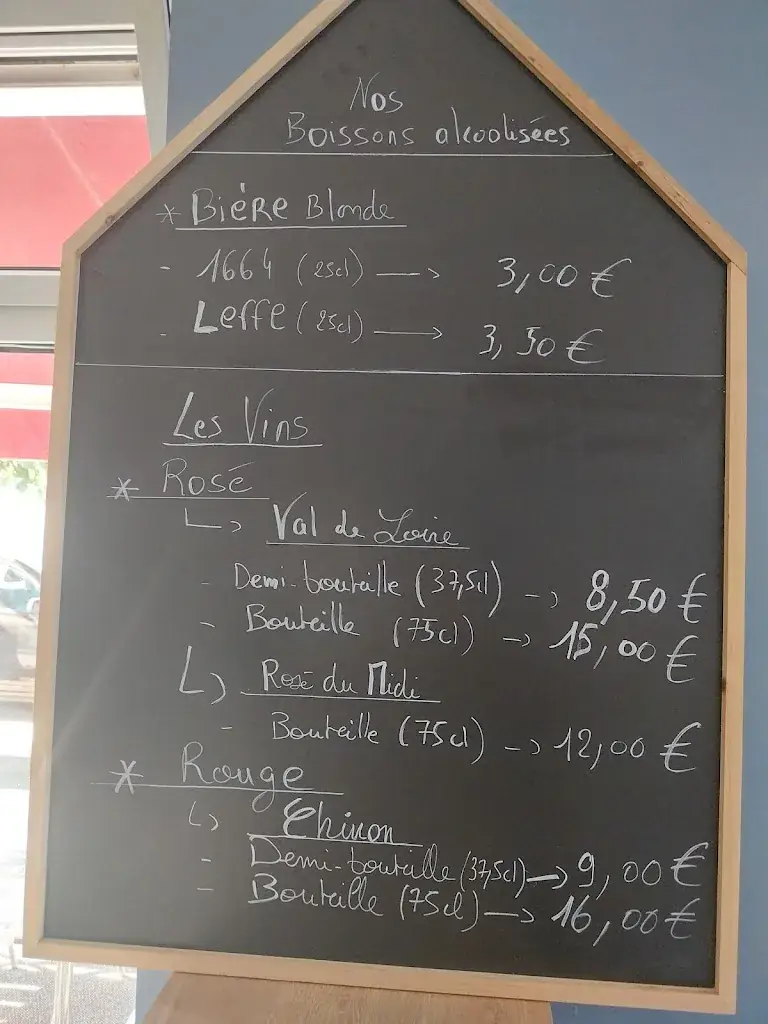 Nos
Boissons alcoolisées
* Bière Blonde
- 1664 (25cl) → 3,00 €
- Leffe (25cl) → 3,50 €
Les Vins
* Rosé
↳ Val de Loire
- Demi-bouteille (37,5cl) → 8,50 €
- Bouteille (75cl) → 15,00 €
↳ Rosé du Midi
- Bouteille (75cl) → 12,00 €
* Rouge
↳ Chinon
- Demi-bouteille (37,5cl) → 9,00 €
- Bouteille (75cl) → 16,00 €